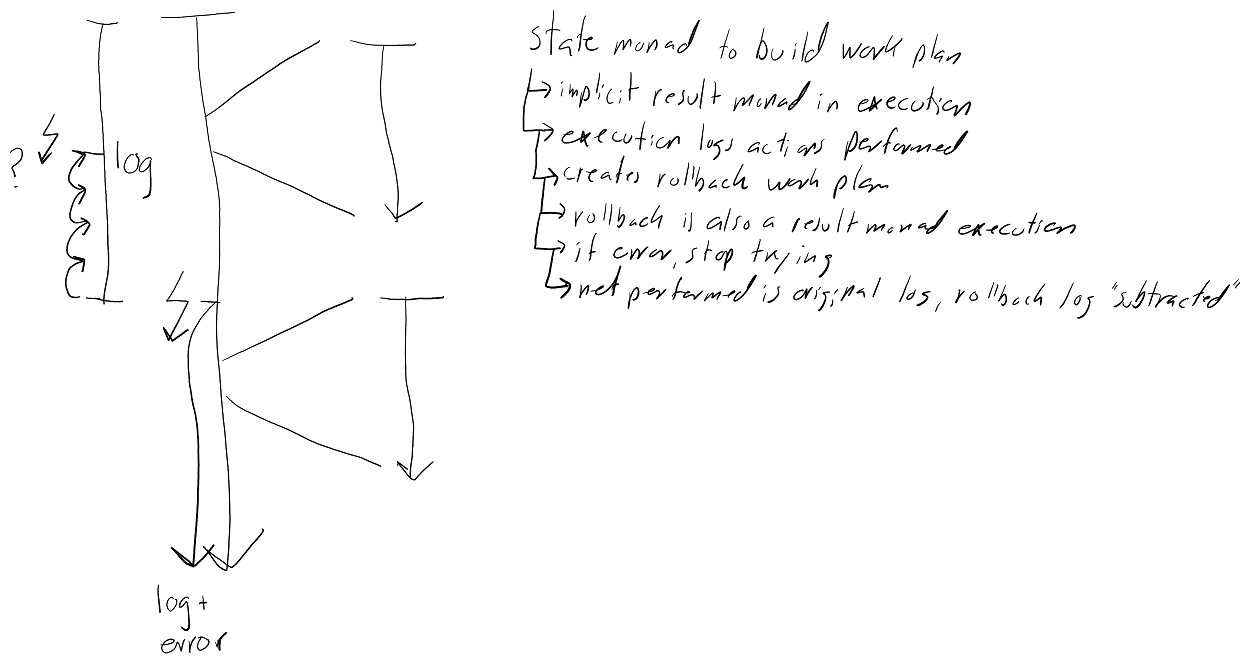 state monad to build work plan
implicit result monad in execution
execution logs actions performed
creates rollback work plan
rollback is also a result monad execution
if error, stop trying
net performed is original log, rollback log "subtracted"
?
log
log +
error